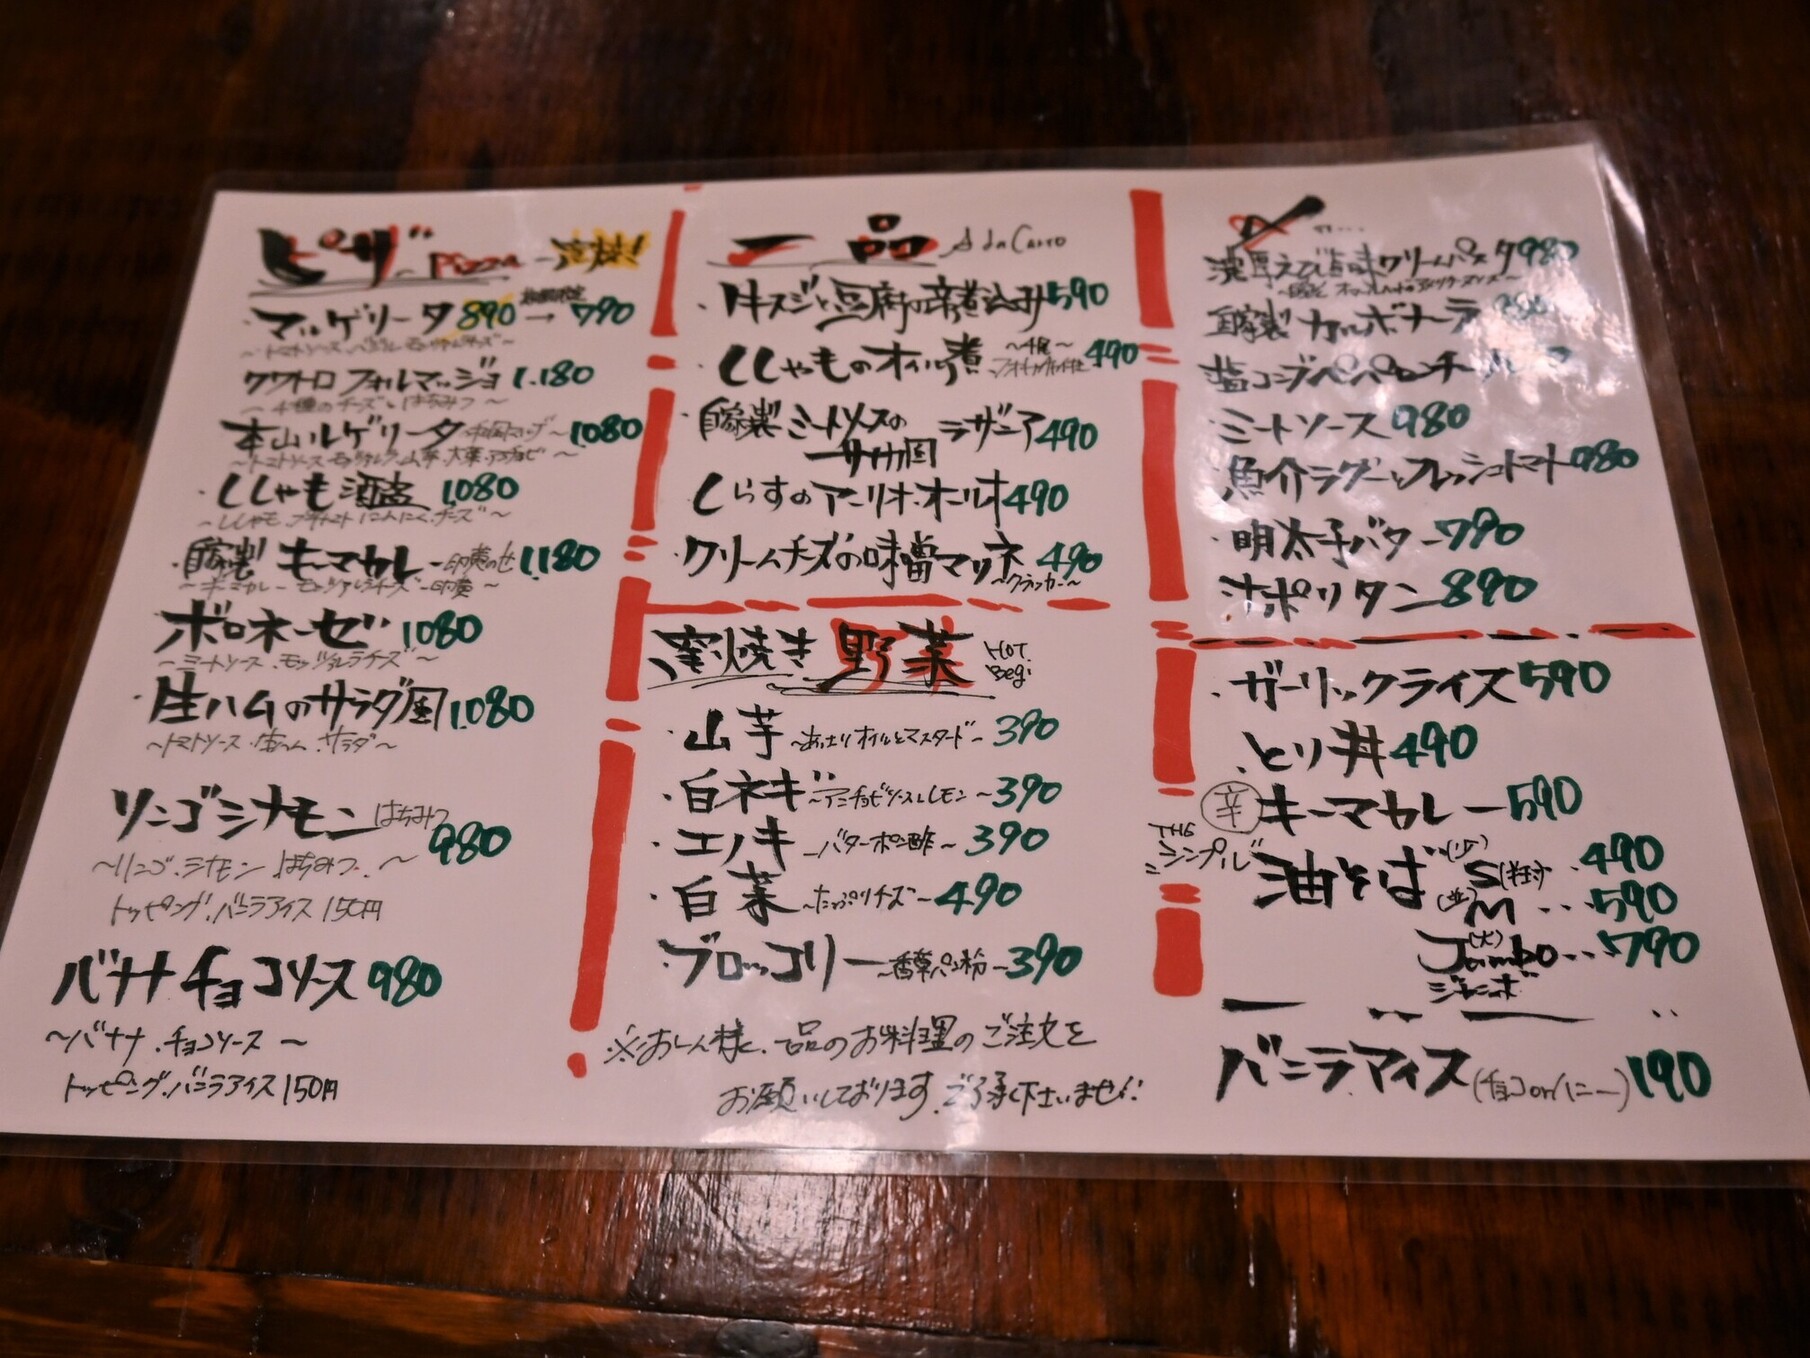 ピザ Pizza 窯焼!
・マルゲリータ 890 → 790
クワトロフォルマッジョ 1.180
〜4種のチーズとはちみつ〜
本山ルゲリータ 1080
〜トマトソース モッツァレラ 山芋 大葉 アンチョビ〜
・ししゃも酒盗 1,080
〜ししゃも プチトマト にんにく チーズ〜
自家製 キーマカレー 1,180
〜キーマカレー モッツァレラチーズ
ボロネーゼ 1080
〜ミートソース モッツァレラチーズ〜
・生ハムのサラダ風 1,080
〜トマトソース 生ハム サラダ〜
リンゴシナモン はちみつ 980
〜リンゴ シナモン はちみつ 〜
トッピング バニラアイス 150円
バナナチョコソース 980
〜バナナ チョコソース〜
トッピング バニラアイス 150円
一品
・牛スジと豆腐の辛煮込み 590
・ししゃものオイル煮 490
自家製ミートソースの ラザニア 490
・しらすのアーリオ・オーリオ 490
・クリームチーズの味噌マリネ 490
〜クラッカー〜
窯焼き野菜 HOT
・山芋 〜あっさりオイルとマスタード〜 390
・白ネギ 〜アンチョビソースとレモン〜 390
・エノキ 〜バターポン酢〜 390
・白菜 〜たっぷりチーズ〜 490
・ブロッコリー 〜香草パン粉〜 390
※お一人様、一品のお料理のご注文を
お願いしております。ご了承下さいませ!
濃厚えび旨味クリームパスタ 980
自家製カルボナーラ
ミートソース 980
魚介ラグーとフレッシュトマト 980
・明太子バター 790
・ナポリタン 890
・ガーリックライス 590
・とり丼 490
辛 キーマカレー 590
THE シンプル 油そば (小) S 490
(並) M … 590
(大) Jumbo … 790
ジャンボ
バニラアイス (チョコorハニー) 190